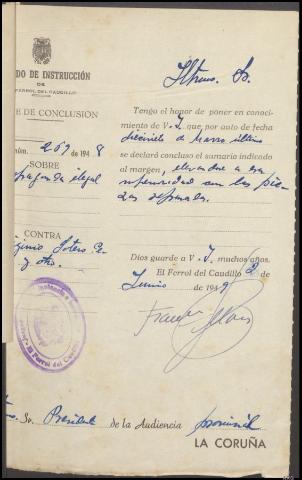 DO DE INSTRUCCIÓN
DE
FERROL DEL CAUDILLO
E DE CONCLUSION
núm. 269 de 1948
SOBRE
ilegal
CONTRA
Sotero
y otro.
El Ferrol del Caudillo
Iltmo. Sr.
Tengo el honor de poner en conoci-
miento de V. I. que por auto de fecha
diecisiete de Marzo último
se declaró concluso el sumario indicado
al margen, elevándose a esa
superioridad con las pie-
zas separadas.
Dios guarde a V. I. muchos años.
El Ferrol del Caudillo 2 de
Junio de 1949
Sr. Presidente de la Audiencia provincial
LA CORUÑA